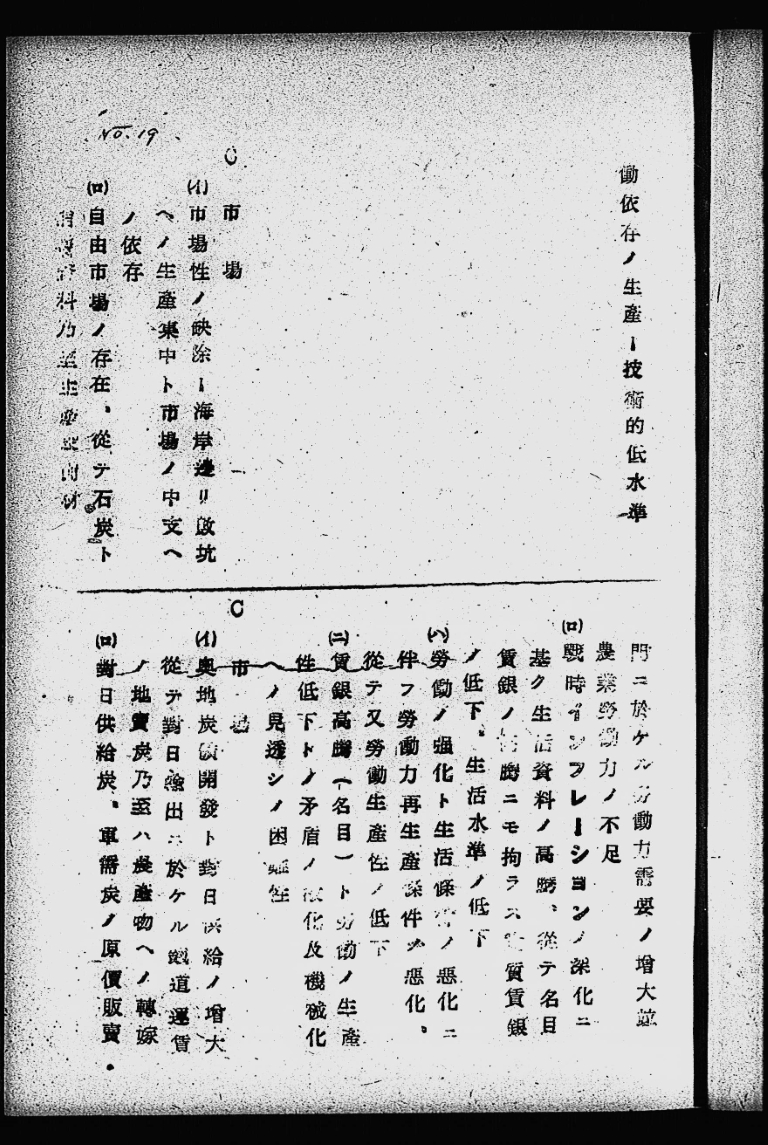 No. 19
働依存ノ生産ー技術的低水準
C 市場
(イ)市場性ノ缺除ー海岸邊リ歛坑
ヘノ生産集中ト市場ノ中支ヘ
ノ依存
(ロ)自由市場ノ存在、從テ石炭ト
料乃至
門ニ於ケル労働力需要ノ增大並
農業勞働力ノ不足
(ロ)戰時インフレーションノ深化ニ
基ク生活資料ノ高騰、從テ名目
賃銀ノ騰ニモ拘ラス實質賃銀
ノ低下、生活水準ノ低下
(ハ)勞働ノ强化ト生活條件ノ惡化ニ
伴フ勞働力再生產條件ノ惡化、
從テ又勞働生產性ノ低下
(ニ)賃銀高騰(名目)ト労働ノ生產
性低下トノ矛盾ノ化及機械化
ヘノ見透シノ困難性
C 市場
(イ)奧地炭礦開發ト對日供給ノ增大
從テ對日輸出ニ於ケル鐵道運賃
ノ地賣炭乃至ハ農產物ヘノ轉嫁
(ロ)對日供給炭、軍需炭ノ原價販賣。